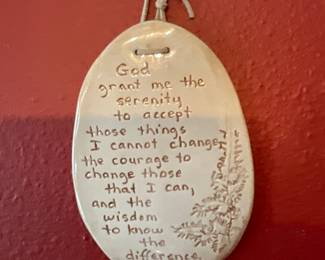 God
grant me the
serenity
to accept
those things
I cannot change,
the courage to
change those
that I can,
and the
wisdom
to know
the
difference.